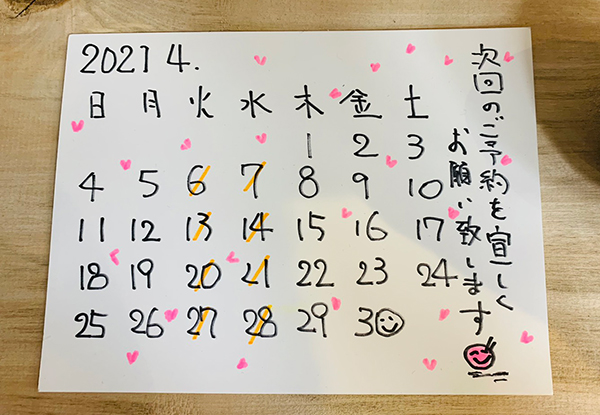 2021 4.
日 月 火 水 木 金 土
1 2 3
4 5 6 7 8 9 10
11 12 13 14 15 16 17
18 19 20 21 22 23 24
25 26 27 28 29 30
次回のご予約を宜しく
お願い致します